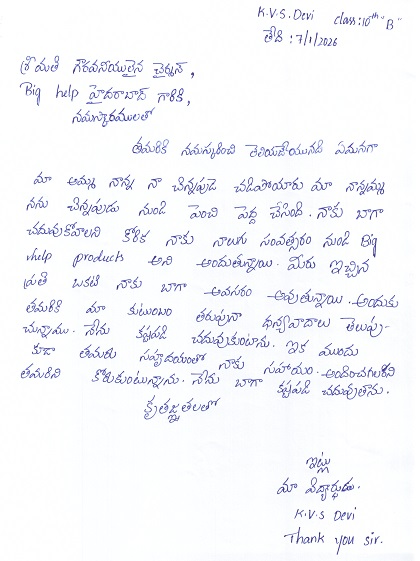 K.V.S. Devi class:10th "B"
తేది :7/1/2026
శ్రీమతి గౌరవనీయులైన చైర్మన్,
Big help హైదరాబాద్ గారికి,
నమస్కారములతో
తమరికి నమస్కరించి తెలియజేయునది ఏమనగా
మా అమ్మ నాన్న నా చిన్నపుడె చనిపోయారు మా నాన్నమ్మ
నను చిన్నపుడు నుండి పెంచి పెద్ద చేసింది. నాకు బాగా
చదువుకోవాలని కోరిక నాకు నాలుగు సంవత్సరం నుండి Big
vhelp products అని అందుతున్నాయి. మీరు ఇచ్చిన
ప్రతి ఒకటి నాకు బాగా అవసరం అవుతున్నాయి. అందుకు
తమరికి మా కుటుంబం తరుపునా ధన్యవాదాలు తెలుపు-
చున్నాము. నేను కష్టపడి చదువుకుంటాను. ఇక ముందు
కూడా తమరు సహృదయంతో నాకు సహాయం అందించగలరని
తమరిని కోరుకుంటున్నాను. నేను బాగా కష్టపడి చదువుతాను.
కృతజ్ఞతలతో
ఇట్లు
మా విద్యార్థుడు.
K.V.S Devi
Thank you sir.